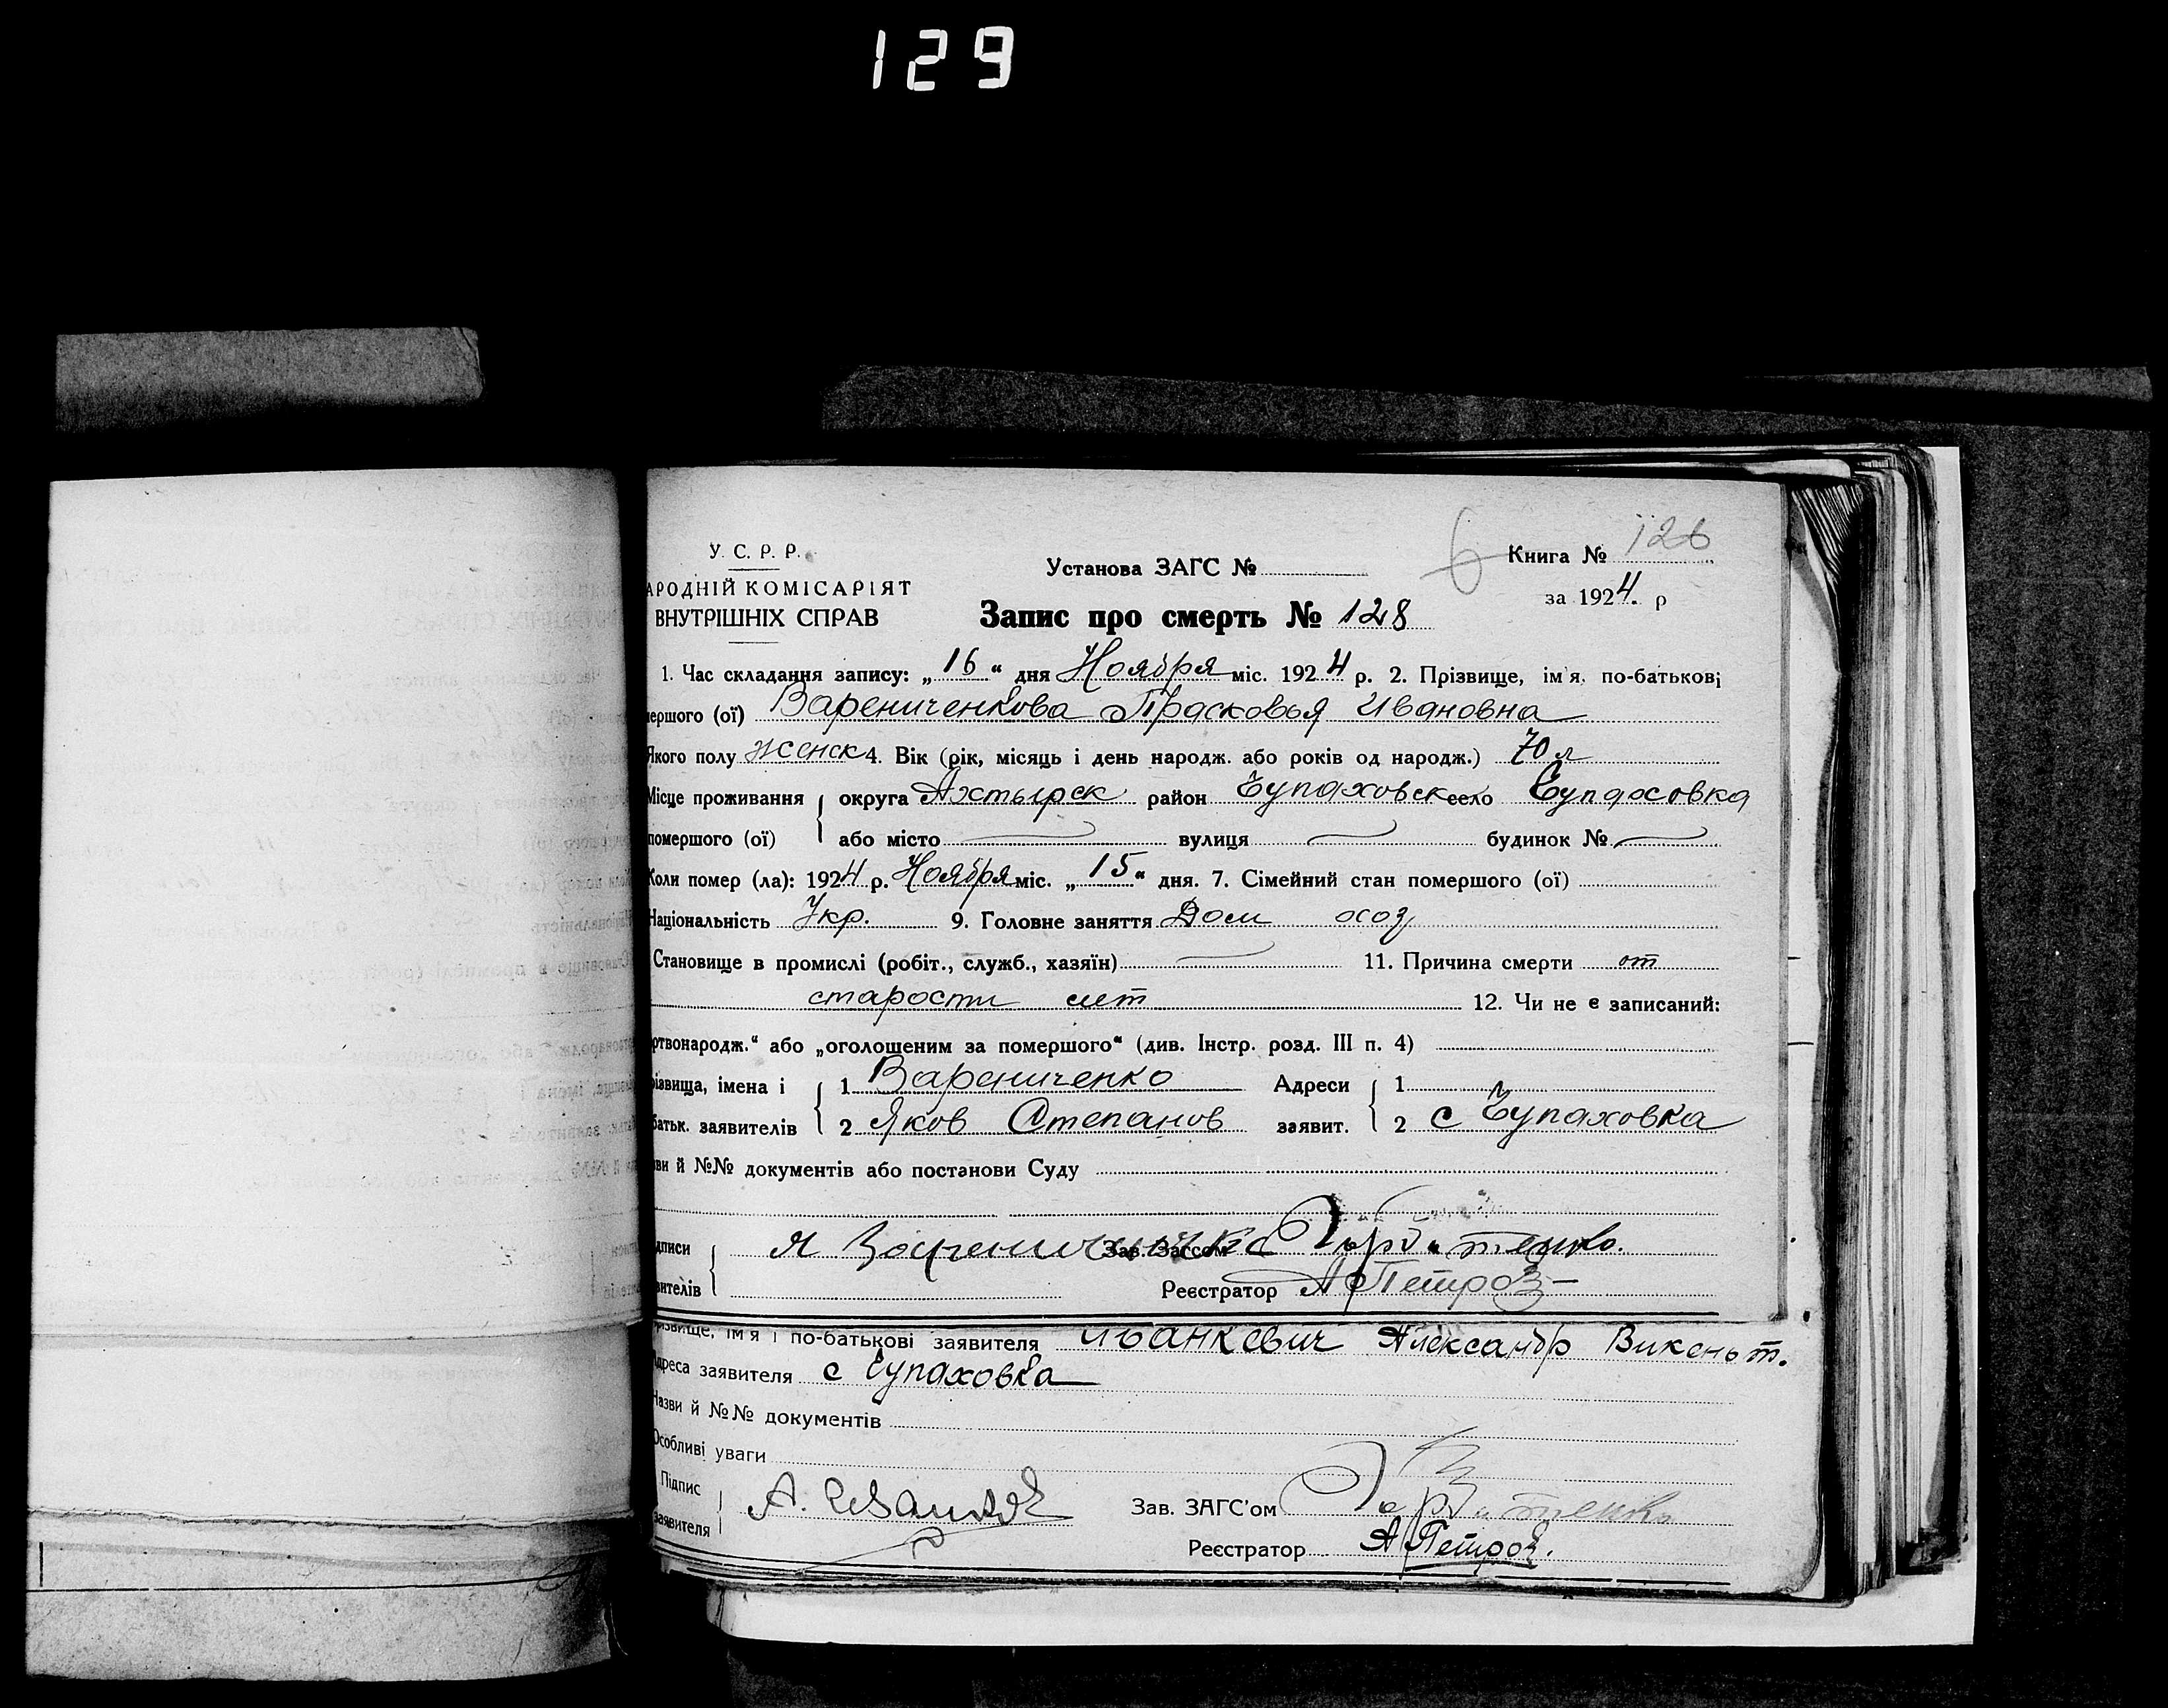 129
У. С. Р. Р.
АРОДНІЙ КОМІСАРІЯТ
ВНУТРІШНІХ СПРАВ
Установа ЗАГС №
Книга № 126
за 1924. р
Запис про смерть № 128
1. Час складання запису: „16“ дня Ноября міс. 1924 р. 2. Прізвище, ім'я, по-батькові
мершого (ої) Варениченкова Прасковья Ивановна
Якого полу женск 4. Вік (рік, місяць і день народж. або років од народж.) 70 л
Місце проживання округа Ахтырск район Чупаховск село Чупаховка
помершого (ої) або місто вулиця будинок №
Коли помер (ла): 1924 р. Ноября міс. „15“ дня. 7. Сімейний стан помершого (ої)
Національність Укр. 9. Головне заняття Дом хоз
Становище в промислі (робіт., служб., хазяїн) 11. Причина смерти от
старости лет 12. Чи не є записаний:
ртвонародж.“ або „оголошеним за помершого“ (див. Інстр. розд. III п. 4)
різвища, імена і 1 Варениченко Адреси 1
батьк. заявителів 2 Яков Степанов заявит. 2 с Чупаховка
зви й №№ документів або постанови Суду
дписи Я Варениченко Зав. Загсом
вителів Реєстратор А Петров
різвище, ім'я і по-батькові заявителя Иванкевич Александр Викеньт.
Адреса заявителя с Чупаховка
Назви й №№ документів
Особливі уваги
Підпис
заявителя
Зав. ЗАГС'ом
Реєстратор А Петров.